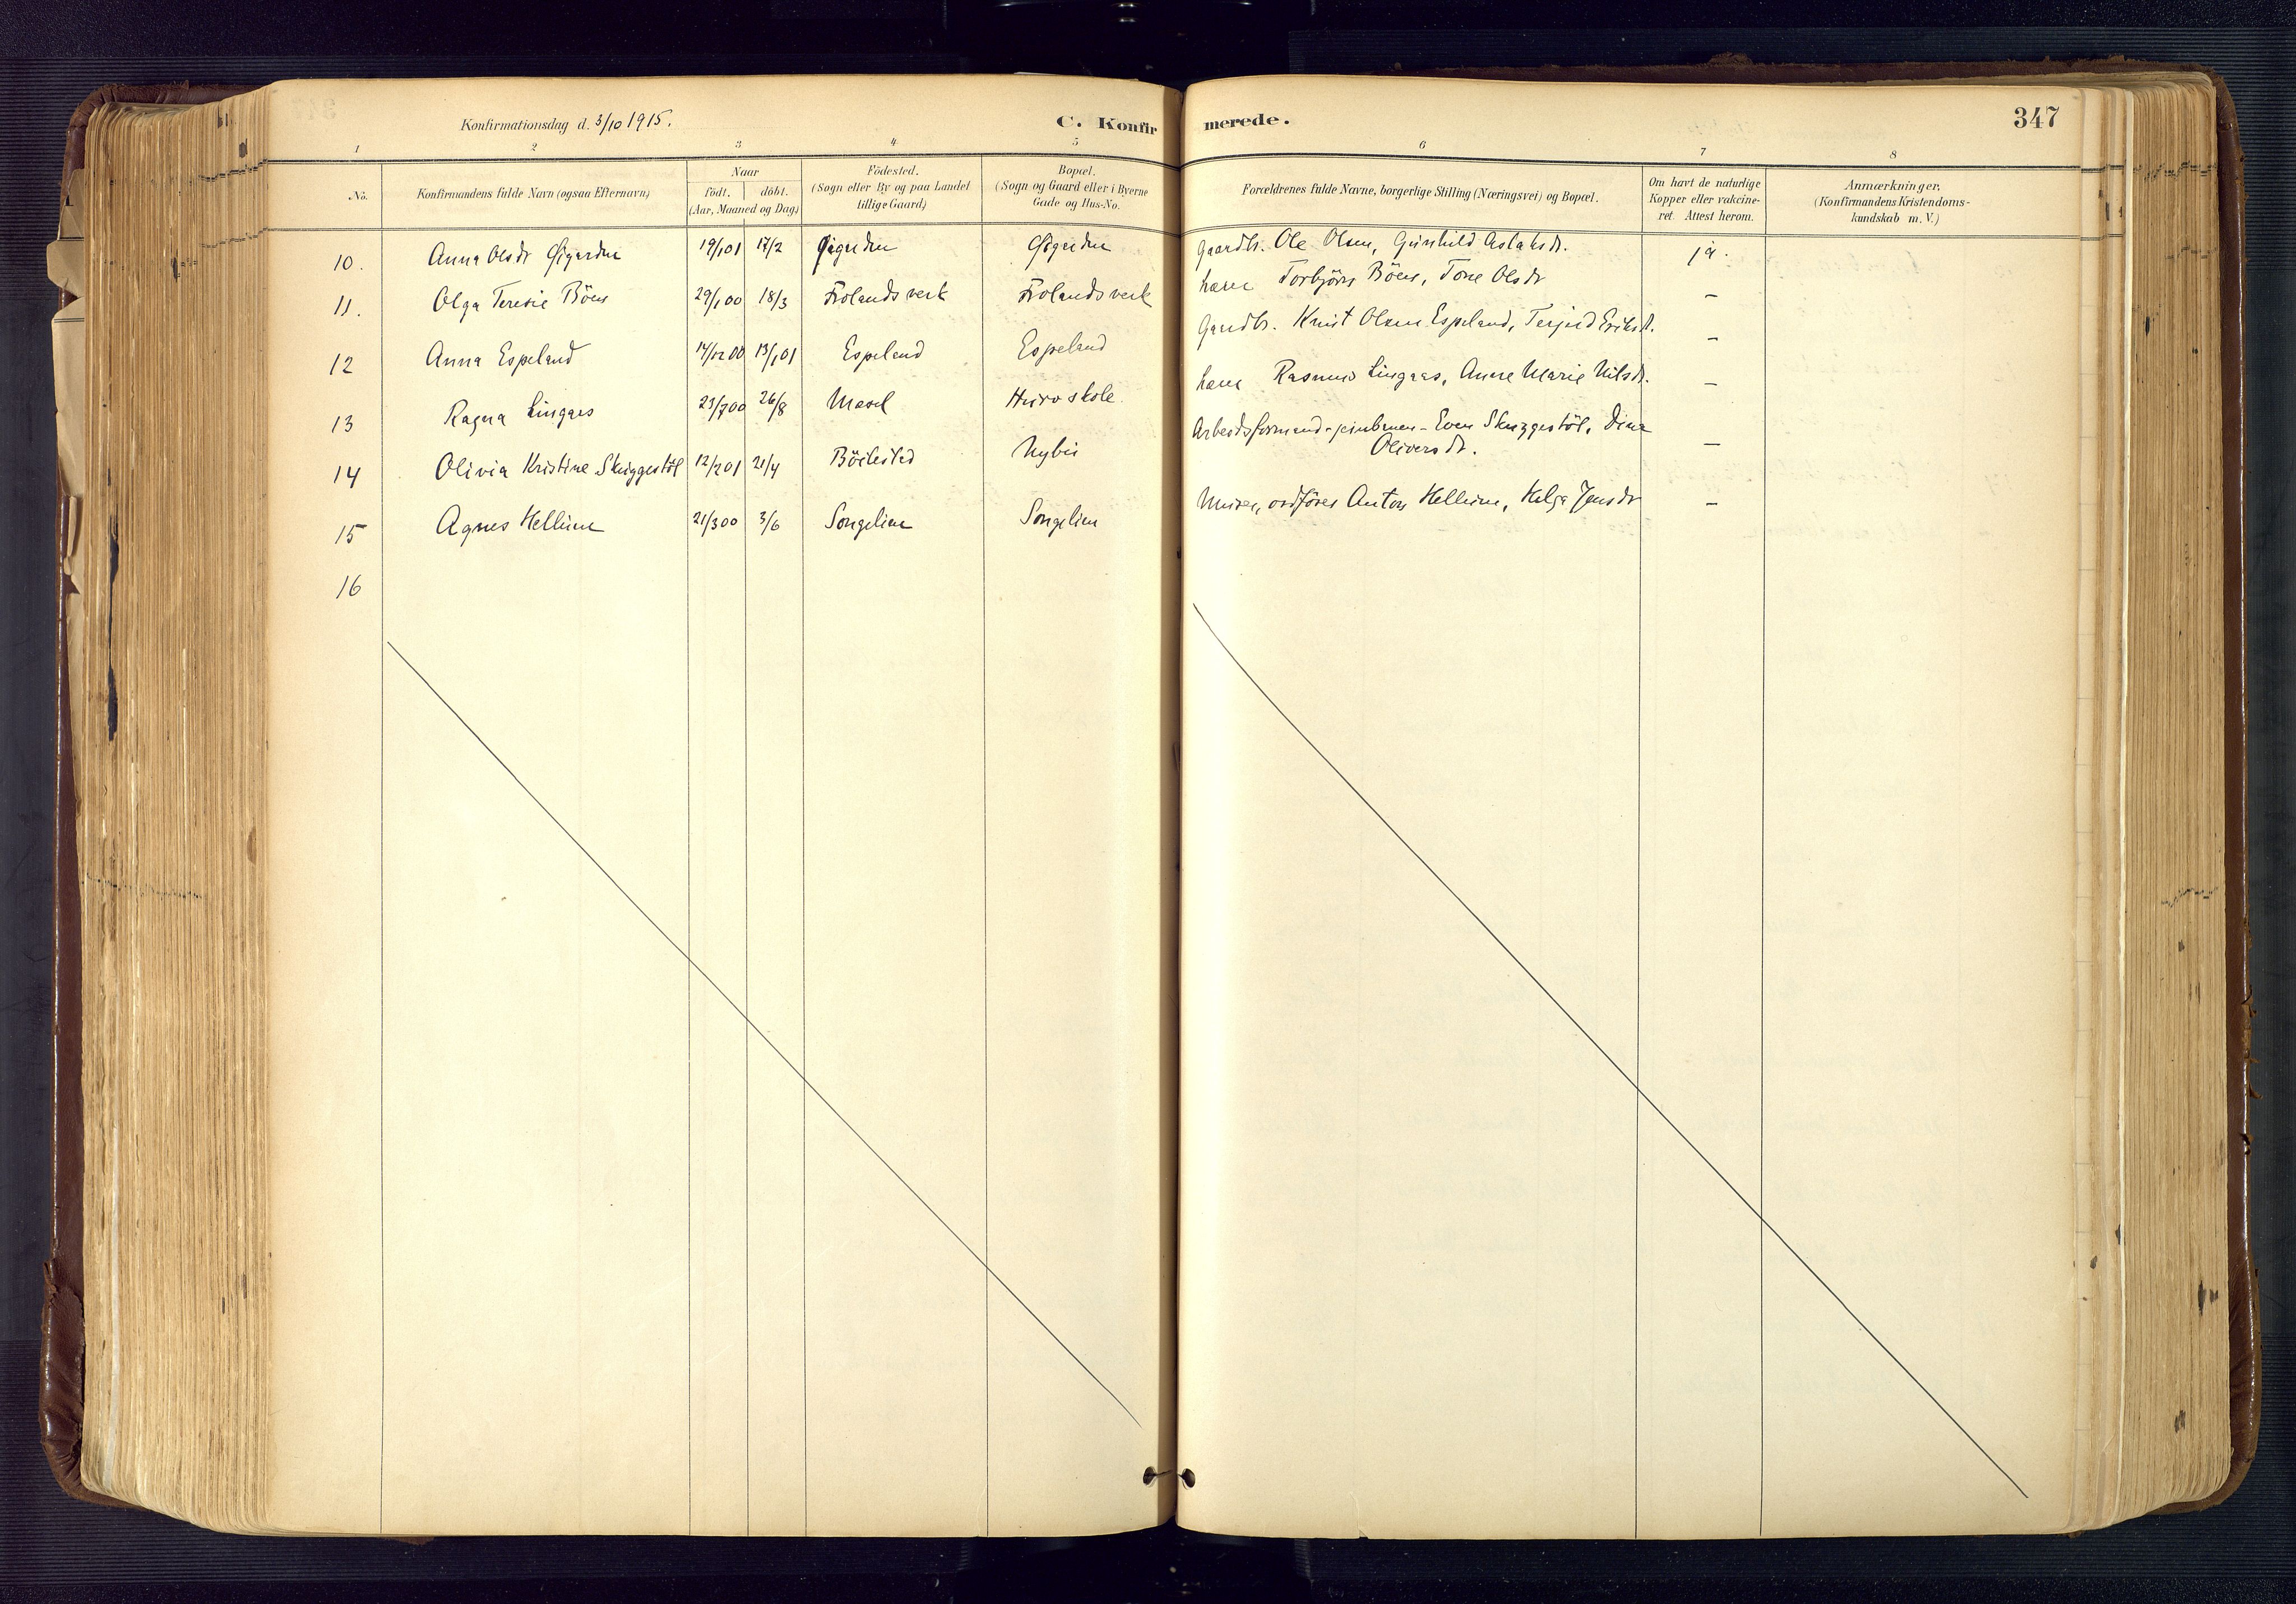 Konfirmationsdag d. 3/10 1915.
C. Konfirmerede.
347
1 2 3 4 5 6 7 8
No.
Konfirmandens fulde Navn (ogsaa Efternavn)
Naar
födt. döbt.
(Aar, Maaned og Dag)
Födested.
(Sogn eller By og paa Landet
tillige Gaard)
Bopæl.
(Sogn og Gaard eller i Byerne
Gade og Hus-No.
Forældrenes fulde Navne, borgerlige Stilling (Næringsvei) og Bopæl.
Om havt de naturlige
Kopper eller vakcine-
ret. Attest herom.
Anmærkninger.
(Konfirmandens Kristendoms-
kundskab m. V.)
10. Anna Olsdr Øigarden 19/1 01 17/2 Øigarden Øigarden Gaardbr. Ole Olsen, Gunhild Aslaksdr. ja.
11. Olga Teresie Böen 29/1 00 18/3 Frolands verk Frolands verk Torbjörn Böen, Tone Olsdr –
12 Anna Espeland 14/12 00 13/1 01 Espeland Espeland Gaardbr. Knut Olsen Espeland, Terjerd Eriksd. –
13 Ragna Lingaas 23/7 00 26/8 Masel skole Rasmus Lingaas, Anne Marie Nilsdr. –
14 Olivia Kristine Skuggestöl 12/2 01 21/4 Böilestad Nybu Arbeidsformand-jernbanen-Even Skuggestöl, Dina
Oliversdr. –
15 Agnes Hellum 21/3 00 3/6 Songelien Songelien Murer, ordförer Anton Hellum, Helga Jensdr –
16